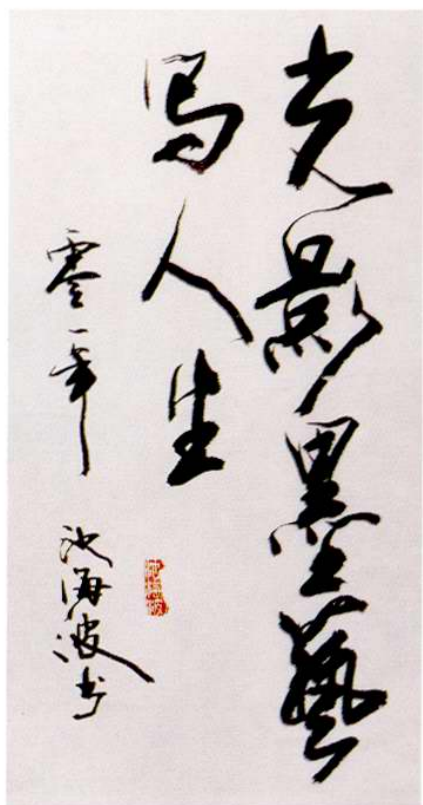 光影墨藝
写人生
零一年 池海波书